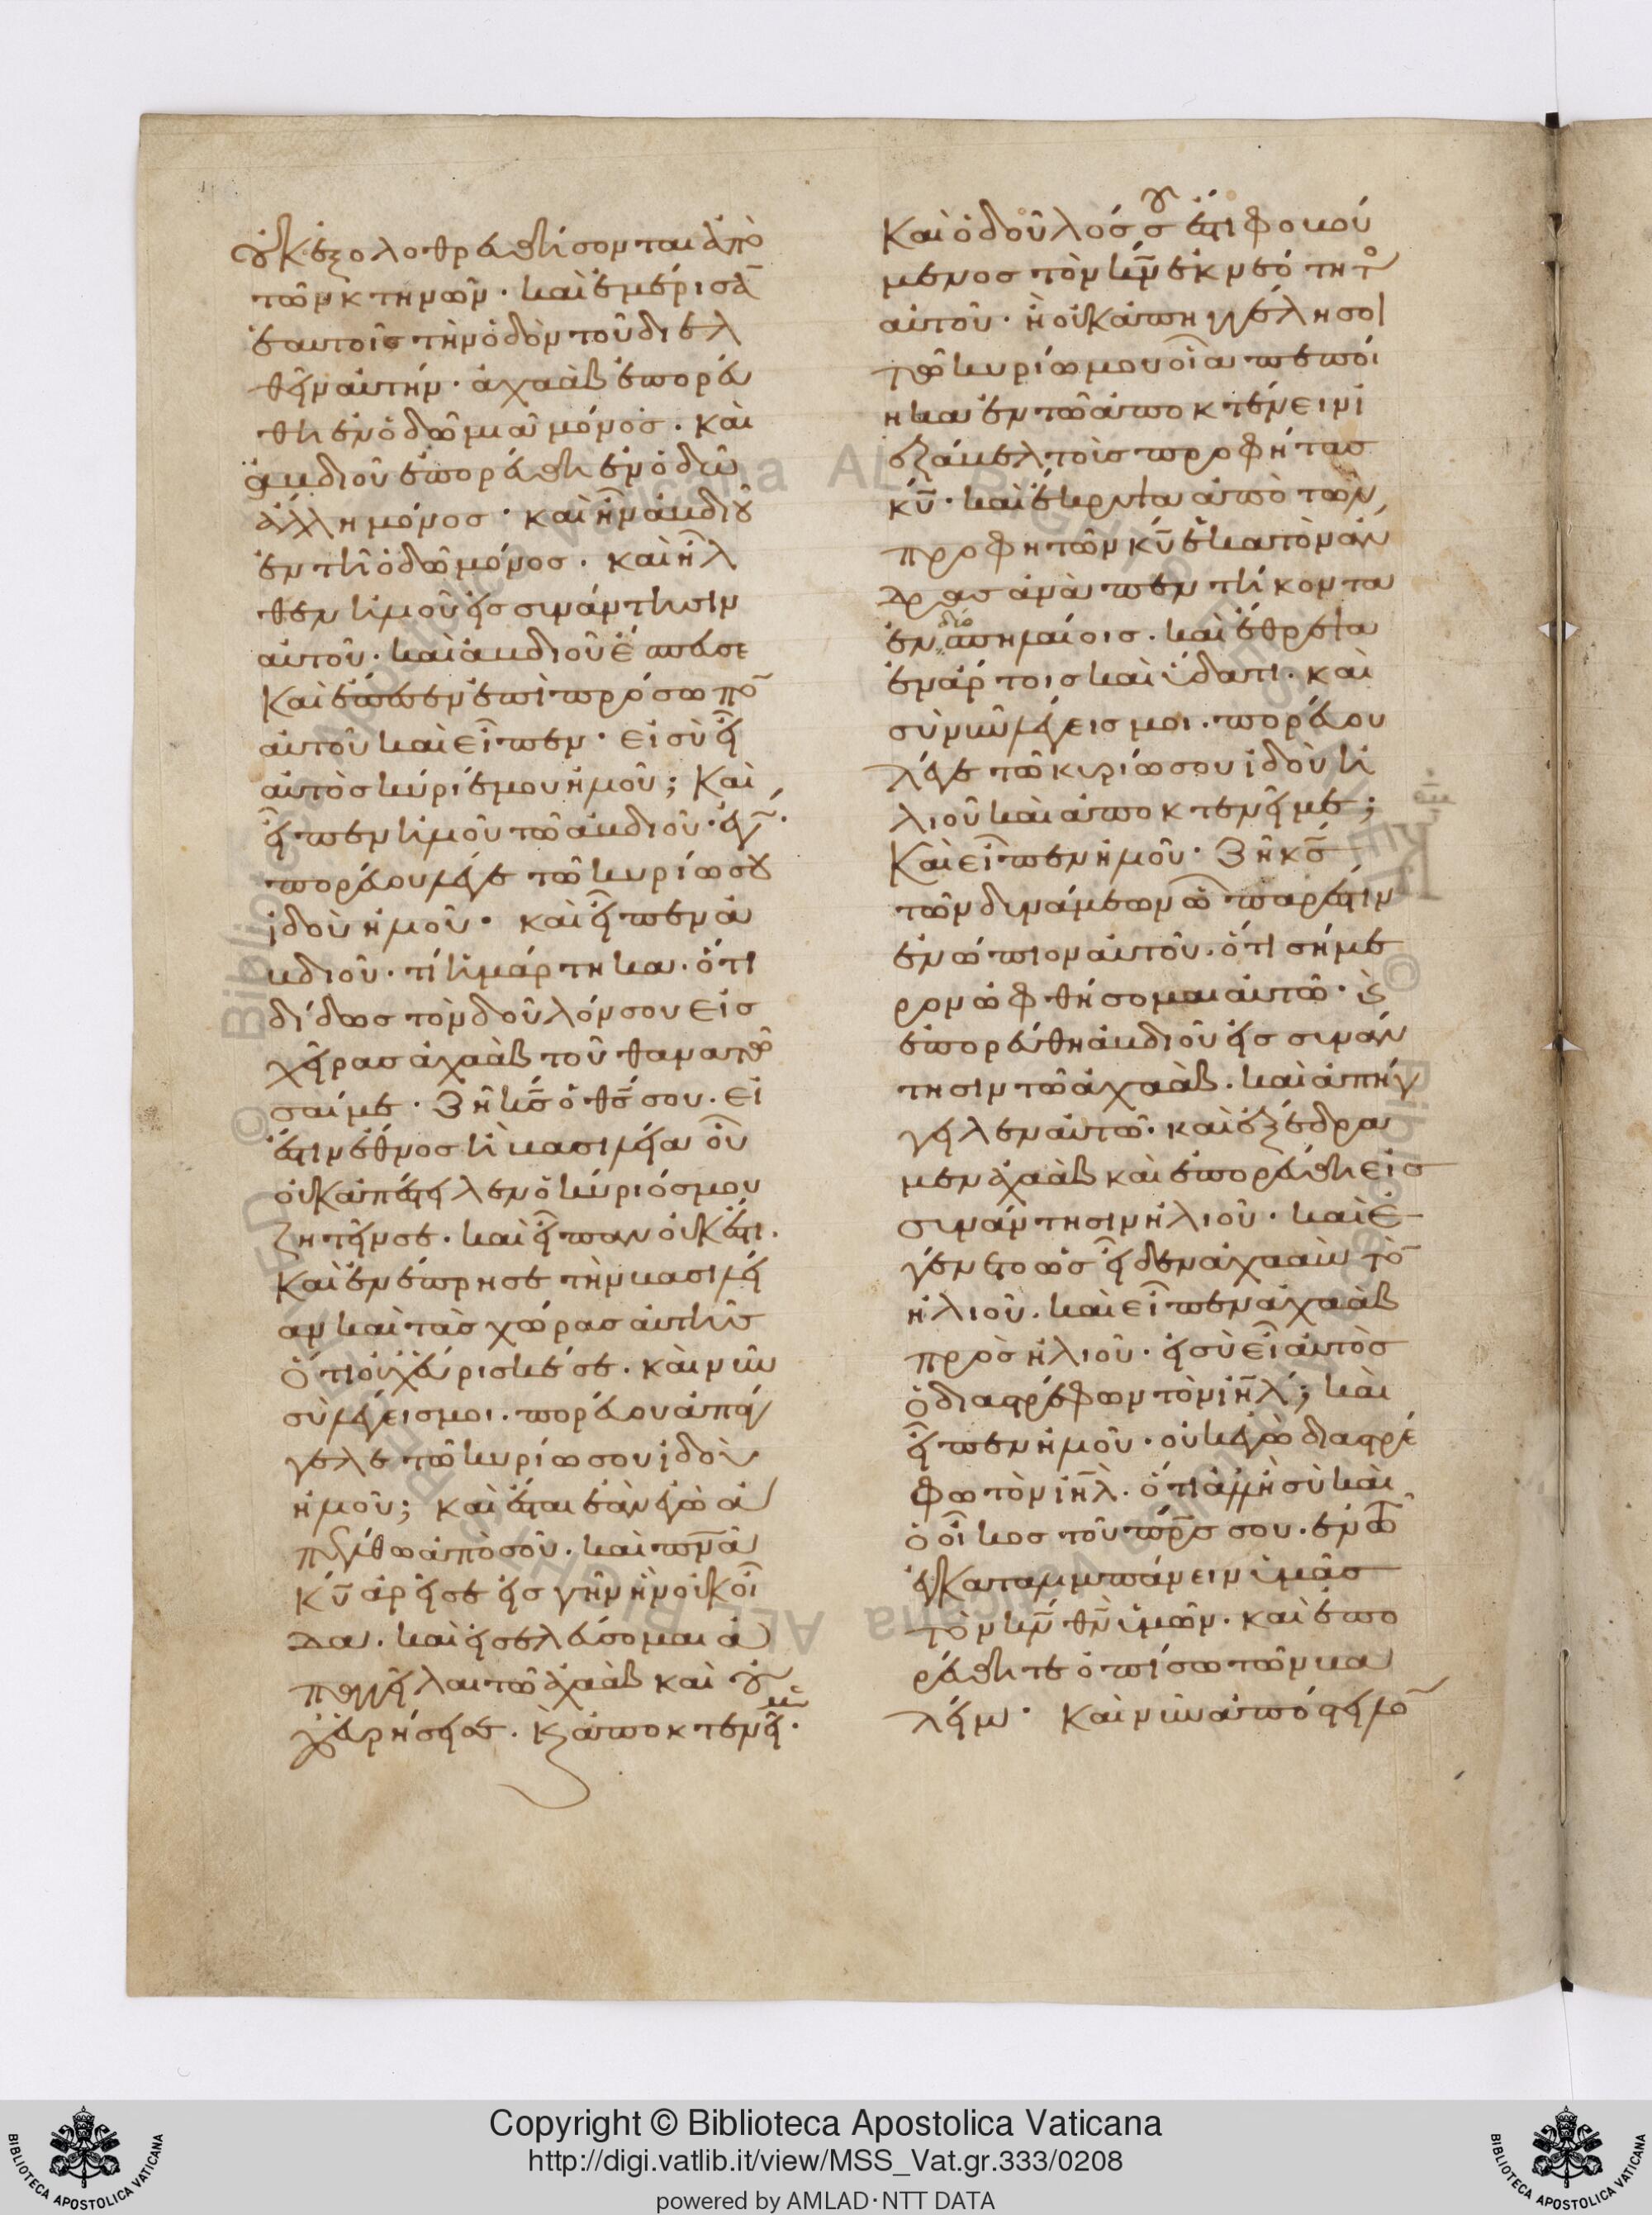 οὐκ ἐξολοθρευθήσονται ἀπὸ
τῶν κτηνῶν· καὶ ἐμέρισᾱ
ἑαυτοῖς τὴν ὁδὸν τοῦ διελ
θεῖν αὐτήν· ἀχαὰβ ἐπορεύ
θη ἐν ὁδῶ μιᾶ μόνος· καὶ
ἀβδιοῦ ἐπορεύθη ἐν ὁδῶ
ἄλλη μόνος· καὶ ἦν ἀβδιοῦ
ἐν τῆ ὁδῶ μόνος· καὶ ἦλ
θεν ἠμοῦ εἰς συνάντησιν
αὐτοῦ· καὶ ἀβδιοῦ ἔσπευσε
Καὶ ἔπεσεν ἐπὶ πρόσωπο̄
αὐτοῦ καὶ εἶπεν· εἰ σὺ εἶ
αὐτὸς κύριέ μου ἠμοῦ; Καὶ
εἶπεν ἠμοῦ τῶ ἀβδιοῦ· ἐγώ·
πορεύου λέγε τῶ κυρίω σου
ἰδοὺ ἠμοῦ· καὶ εἶπεν ἀ
βδιοῦ· τί ἡμάρτηκα· ὅτι
δίδως τὸν δοῦλόν σου εἰς
χεῖρας ἀχαὰβ τοῦ θανατῶ
σαί με· Ζῆ κ̅ς̅ ὁ θ̅ς̅ σου· εἰ
ἔστιν ἔθνος ἢ βασιλεία οὗ
οὐκ ἀπέστειλεν ὁ κύριός μου
ζητεῖν σε· καὶ εἶπαν οὐκ ἔστι·
Καὶ ἐνέπρησε τὴν βασιλεί
αν καὶ τὰς χώρας αὐτῆς
Ὅτι οὐχ εὕρισκέ σε· καὶ νῦν
σὺ λέγεις μοι· πορεύου ἀπάγ
γελε τῶ κυρίω σου ἰδοὺ
ἠμοῦ; καὶ ἔσται ἐὰν ἐγὼ ἀ
πέλθω ἀπὸ σοῦ· καὶ π̅ν̅α̅
κ̅υ̅ ἀρεῖ σε εἰς γῆν ἣν οὐκ οἶ
δα· καὶ εἰσελεύσομαι ἀ
παγγεῖλαι τῶ ἀχαὰβ καὶ οὐ
χ εὑρήσει σε· κ̀ ἀποκτενεῖ με·
Καὶ ὁ δοῦλός σου ἐστι φοβού
μενος τὸν κ̅ν̅ ἐκ νεότητος
αὐτοῦ· ἢ οὐκ ἀπηγγέλη σοι
τῶ κυρίω μου οἷα πεποί
ηκα ἐν τῶ ἀποκτένειν ἰ
εζάβελ τοὺς προφήτας
κ̅υ̅· καὶ ἔκρυψα ἀπὸ τῶν
προφητῶν κ̅υ̅ ἑκατὸν ἄν
δρας ἀνὰ πεντήκοντα
ἐν δύο σπηλαίοις· καὶ ἔθρεψα
ἐν ἄρτοις καὶ ὕδατι· καὶ
σὺ νῦν λέγεις μοι· πορεύου
λέγε τῶ κυρίω σου ἰδοὺ ἠ
λιοῦ καὶ ἀποκτενεῖ με;
Καὶ εἶπεν ἠμοῦ· Ζῆ κ̅ς̅
τῶν δυνάμεων ὧ παρέστην
ἐνώπιον αὐτοῦ· ὅτι σήμε
ρον ὀφθήσομαι αὐτῶ· κ̀
ἐπορεύθη ἀβδιοῦ εἰς συνάν
τησιν τῶ ἀχαὰβ· καὶ ἀπήγ
γειλεν αὐτῶ· καὶ ἐξέδρα
μεν ἀχαὰβ καὶ ἐπορεύθη εἰς
συνάντησιν ἠλιοῦ· καὶ ἐ
γένετο ὡς εἶδεν ἀχαὰβ τὸ̄
ἠλιοῦ· καὶ εἶπεν ἀχαὰβ
πρὸς ἠλιοῦ· εἰ σὺ εἶ αὐτὸς
ὁ διαστρέφων τὸν ι̅η̅λ̅; καὶ
εἶπεν ἠμοῦ· οὐκ ἐγὼ διαστρέ
φω τὸν ι̅η̅λ̅· ὅτι ἀλλὴ σὺ καὶ
ὁ οἶκος τοῦ π̅ρ̅ς̅ σου· ἐν τῶ
ἐγκαταλιμπάνειν ὑμᾶς
τὸν κ̅ν̅ θ̅ν̅ ὑμῶν· καὶ ἐπο
ρεύθητε ὀπίσω τῶν βα
λείμ· Καὶ νῦν ἀπόστειλο̄
Copyright © Biblioteca Apostolica Vaticana
http://digi.vatlib.it/view/MSS_Vat.gr.333/0208
powered by AMLAD·NTT DATA
BIBLIOTECA APOSTOLICA VATICANA
BIBLIOTECA APOSTOLICA VATICANA